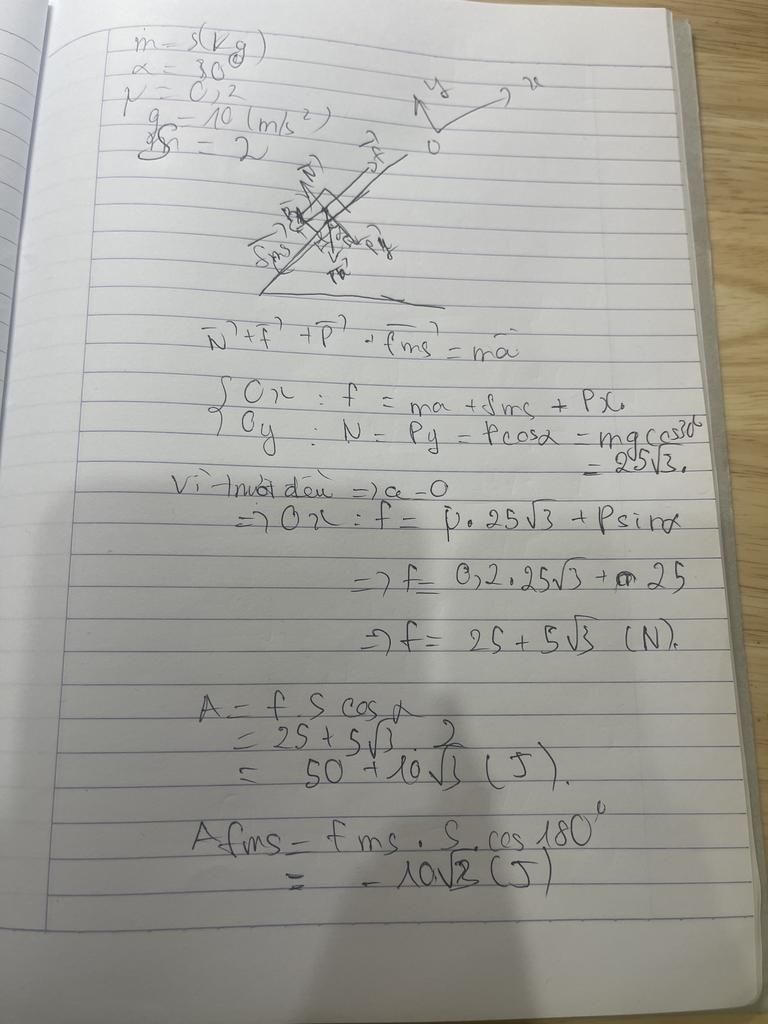 m = 5(kg)
α = 30°
μ = 0,2
g = 10 (m/s²)
= 2
y x
O
N⃗ F⃗
Fms⃗ Py⃗
N⃗ + f⃗ + P⃗ + fms⃗ = ma⃗
{ Ox : f = ma + fms + Px.
Oy : N = Py = Pcosα = mgcos30°
= 25√3.
Vì trượt đều => a = 0
=> Ox : f = μ. 25√3 + Psinα
=> f = 0,2.25√3 + 25
=> f = 25 + 5√3 (N).
A = f S cos α
= 25 + 5√3 . 2
= 50 + 10√3 (J).
Afms = fms . S . cos 180°
= - 10√3 (J)